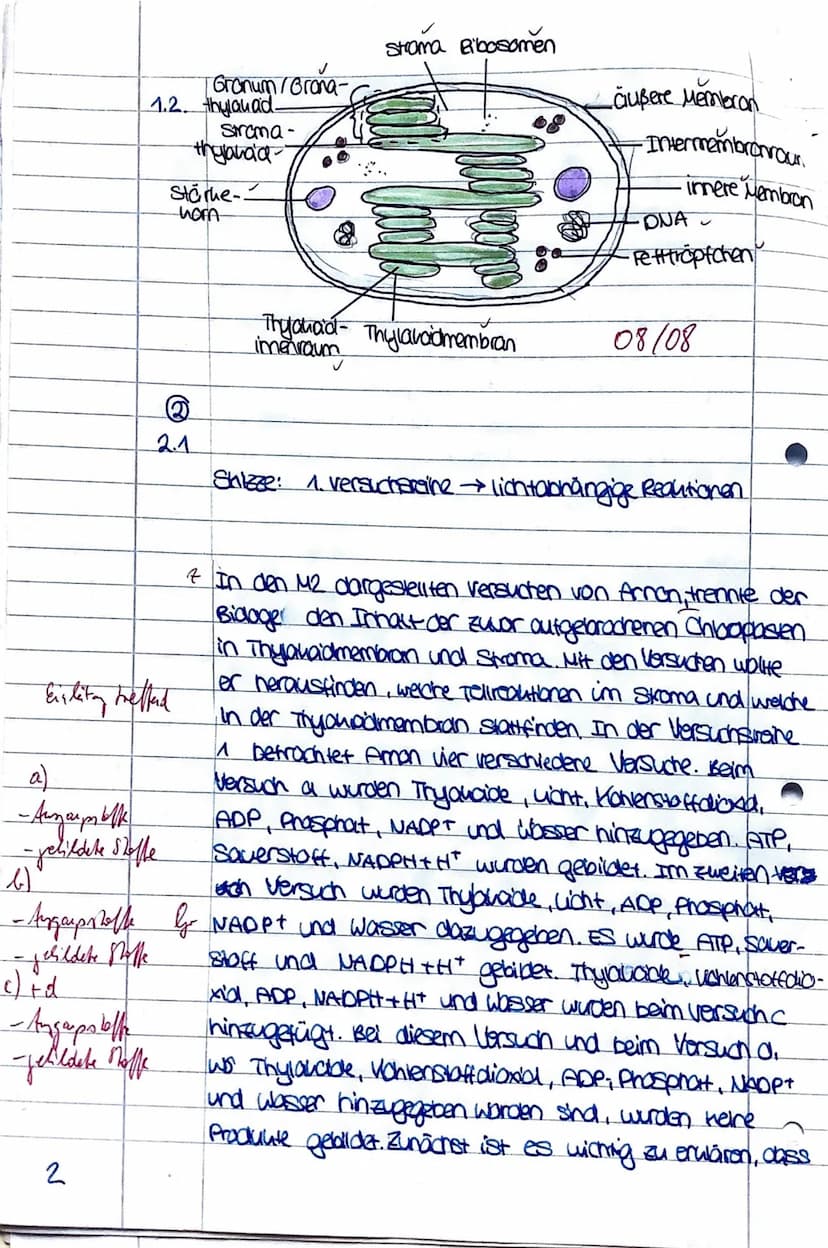 Stroma Ribosomen
Granum/Grana-
1.2. thylakoid
Stroma-
thylakoid
Stärke-
korn
äußere Membran
Intermembranraum
innere Membran
DNA
Fetttröpfchen
Thylakoid-
innenraum
Thylakoidmembran
08/08
②
2.1
Skizze: 1. Versuchsreihe → lichtabhängige Reaktionen
z In den M2 dargestellten Versuchen von Arnon, trennte der
Biologe den Inhalt der zuvor aufgebrochenen Chloroplasen
in Thylakoidmembran und Stroma. Mit den Versuchen wollte
er herausfinden, welche Teilreaktionen im Stroma und welche
in der Thylakoidmembran stattfinden. In der Versuchsreihe
1 betrachtet Arnon vier verschiedene Versuche. Beim
Versuch a wurden Thylakoide, Licht, Kohlenstoffdioxid,
ADP, Phosphat, NADP+ und Wasser hinzugegeben. ATP,
Sauerstoff, NADPH+H+ wurden gebildet. Im zweiten
Versuch wurden Thylakoide, Licht, ADP, Phosphat,
NADP+ und Wasser dazugegeben. Es wurde ATP, Sauer-
stoff und NADPH+H+ gebildet. Thylakoide, Kohlenstoffdio-
xid, ADP, NADPH+H+ und Wasser wurden beim Versuch c
hinzugefügt. Bei diesem Versuch und beim Versuch d,
wo Thylakoide, Kohlenstoffdioxid, ADP, Phosphat, NADP+
und Wasser hinzugegeben worden sind, wurden keine
Produkte gebildet. Zunächst ist es wichtig zu erklären, dass
Einleitung treffend
a)
- Ausgangsstoffe
- gebildete Stoffe
b)
- Ausgangsstoffe Gr
- gebildete Stoffe
c) + d
- Ausgangsstoffe
- gebildete Stoffe
2